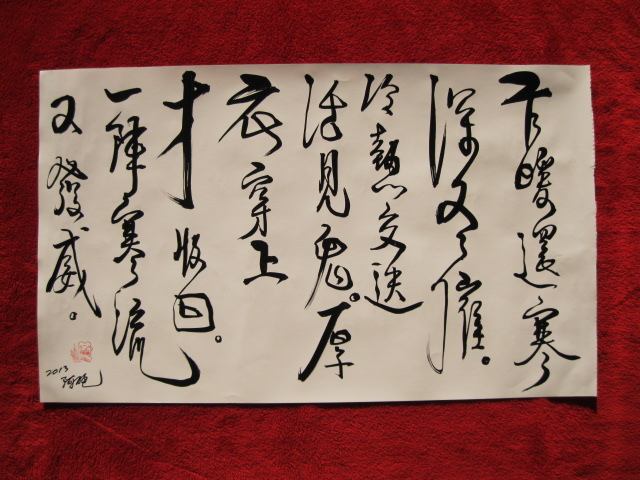 乍暖還寒
深冬催。
冷熱交迭
活見鬼。厚
衣穿上
才收回。
一陣寒流
又發威。
2013